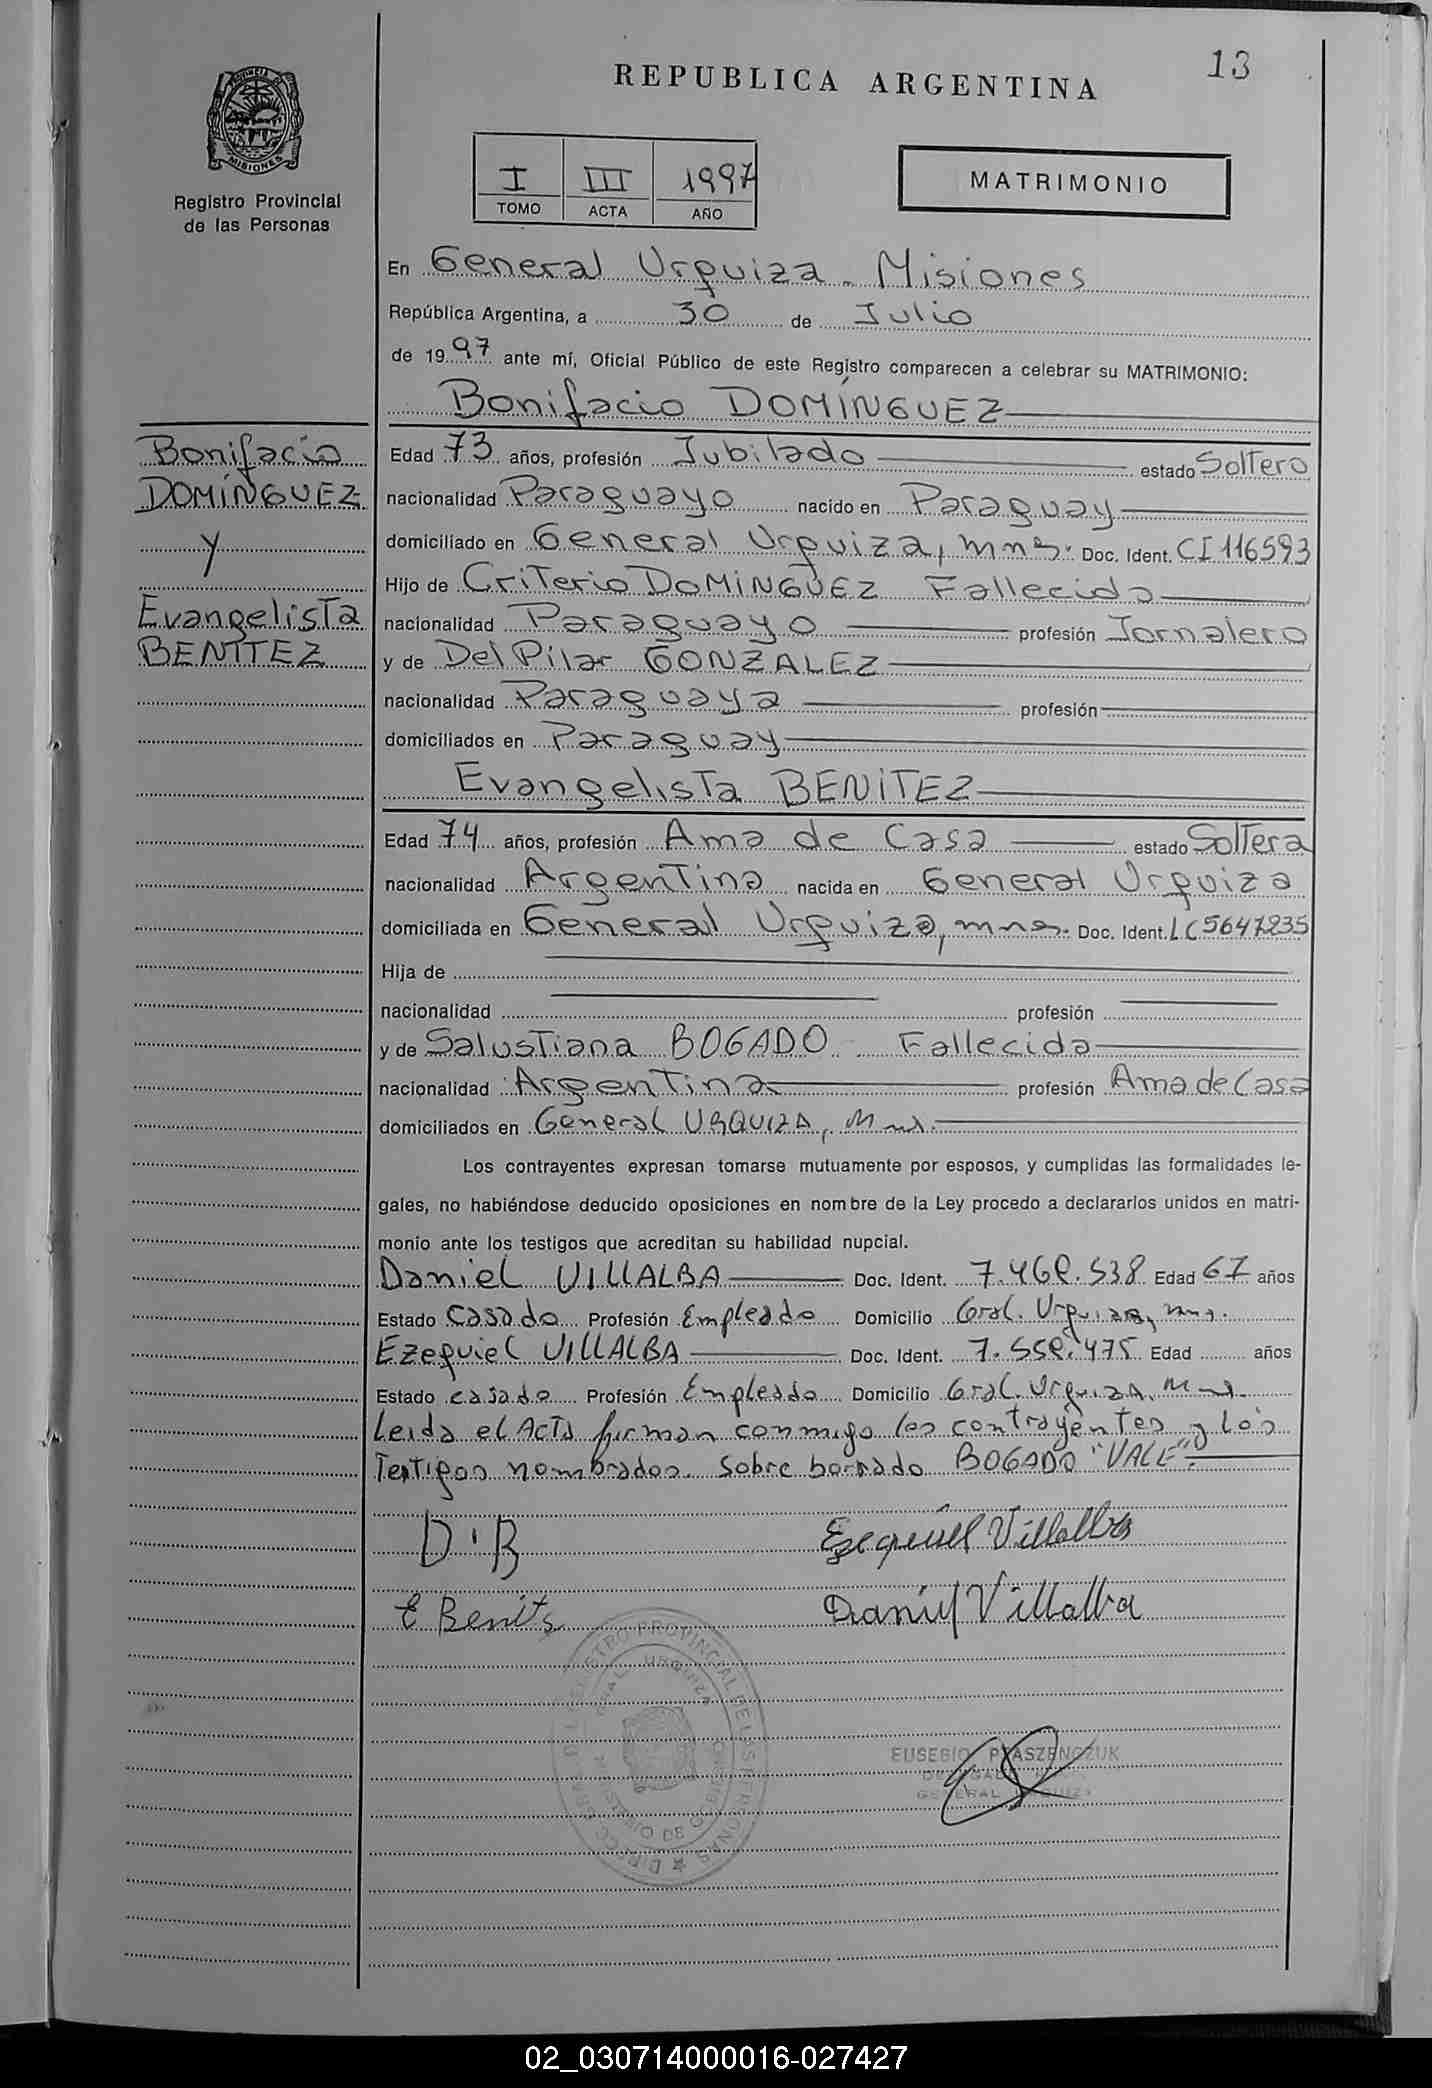 13
REPUBLICA ARGENTINA
PROVINCIA DE
MISIONES
Registro Provincial
de las Personas
I III 1997
TOMO ACTA AÑO
MATRIMONIO
En General Urquiza - Misiones
República Argentina, a 30 de Julio
de 1997 ante mí, Oficial Público de este Registro comparecen a celebrar su MATRIMONIO:
Bonifacio DOMÍNGUEZ
Bonifacio
DOMÍNGUEZ
y
Evangelista
BENITEZ
Edad 73 años, profesión Jubilado estado Soltero
nacionalidad Paraguayo nacido en Paraguay
domiciliado en General Urquiza, mns. Doc. Ident. CI 116593
Hijo de Criterio DOMINGUEZ Fallecido
nacionalidad Paraguayo profesión Jornalero
y de Del Pilar GONZALEZ
nacionalidad Paraguaya profesión
domiciliados en Paraguay
Evangelista BENITEZ
Edad 74 años, profesión Ama de Casa estado Soltera
nacionalidad Argentina nacida en General Urquiza
domiciliada en General Urquiza, mns. Doc. Ident. LC 5647235
Hija de
nacionalidad profesión
y de Salustiana BOGADO Fallecida
nacionalidad Argentina profesión Ama de Casa
domiciliados en General URQUIZA, Mns.
Los contrayentes expresan tomarse mutuamente por esposos, y cumplidas las formalidades le-
gales, no habiéndose deducido oposiciones en nombre de la Ley procedo a declararlos unidos en matri-
monio ante los testigos que acreditan su habilidad nupcial.
Daniel VILLALBA Doc. Ident. 7.468.538 Edad 67 años
Estado Casado Profesión Empleado Domicilio Gral. Urquiza, mns.
Ezequiel VILLALBA Doc. Ident. 7.558.475 Edad años
Estado casado Profesión Empleado Domicilio Gral. Urquiza, Mns.
Leida el Acta firman conmigo los contrayentes y los
Testigos nombrados. Sobre borrado BOGADO "VALE".
D B Ezequiel Villalba
E Benits Daniel Villalba
EUSEBIO PTASZENCZUK
GENERAL URQUIZA
02_030714000016-027427